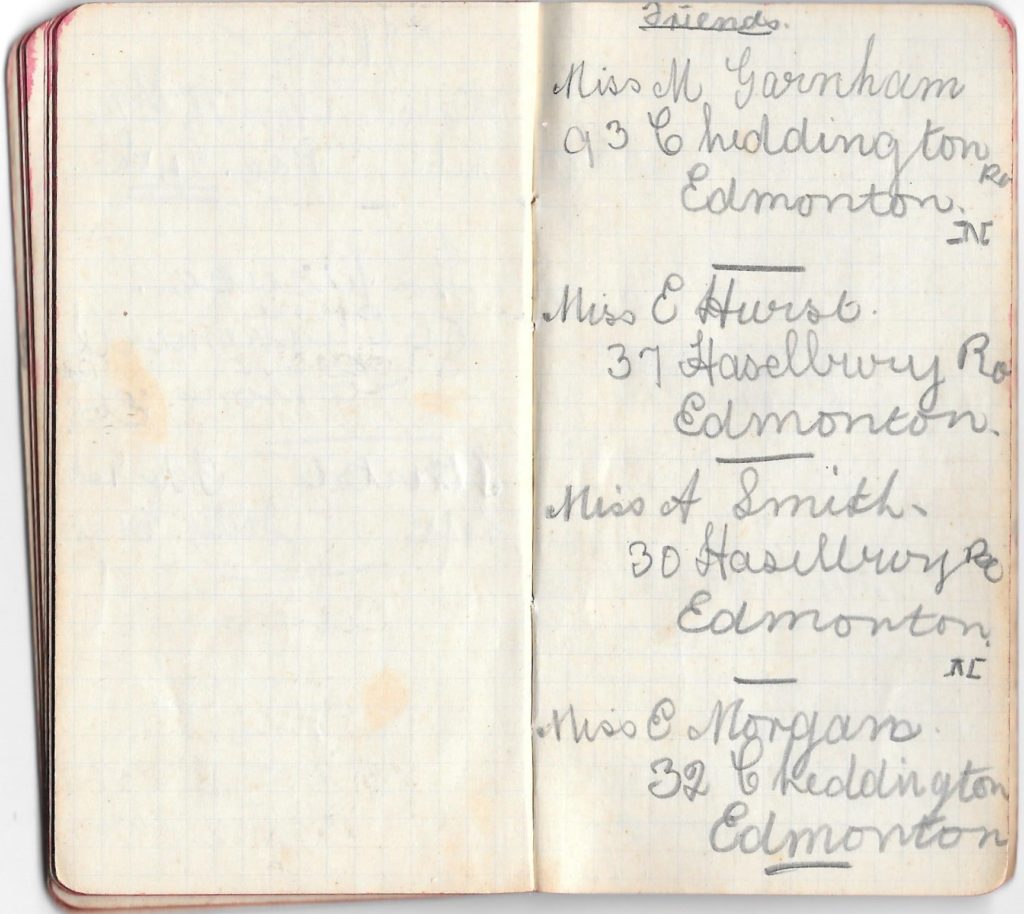 Friends.
Miss M Garnham
93 Cheddington
Rd
Edmonton.
N
Miss E Hurst.
37 Haselbury Rd
Edmonton.
Miss A Smith.
30 Haselbury Rd
Edmonton.
N
Miss C Morgan
32 Cheddington
Edmonton